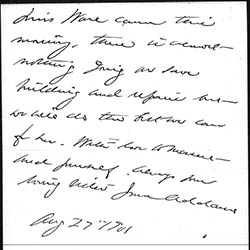 Miss Ware came this
morning, there is almost
nothing going on save
building and repairs but
we will do the best we can
for her. Write how to
and yourself. Always your
loving sister Jane Addams
Aug 27" 1901